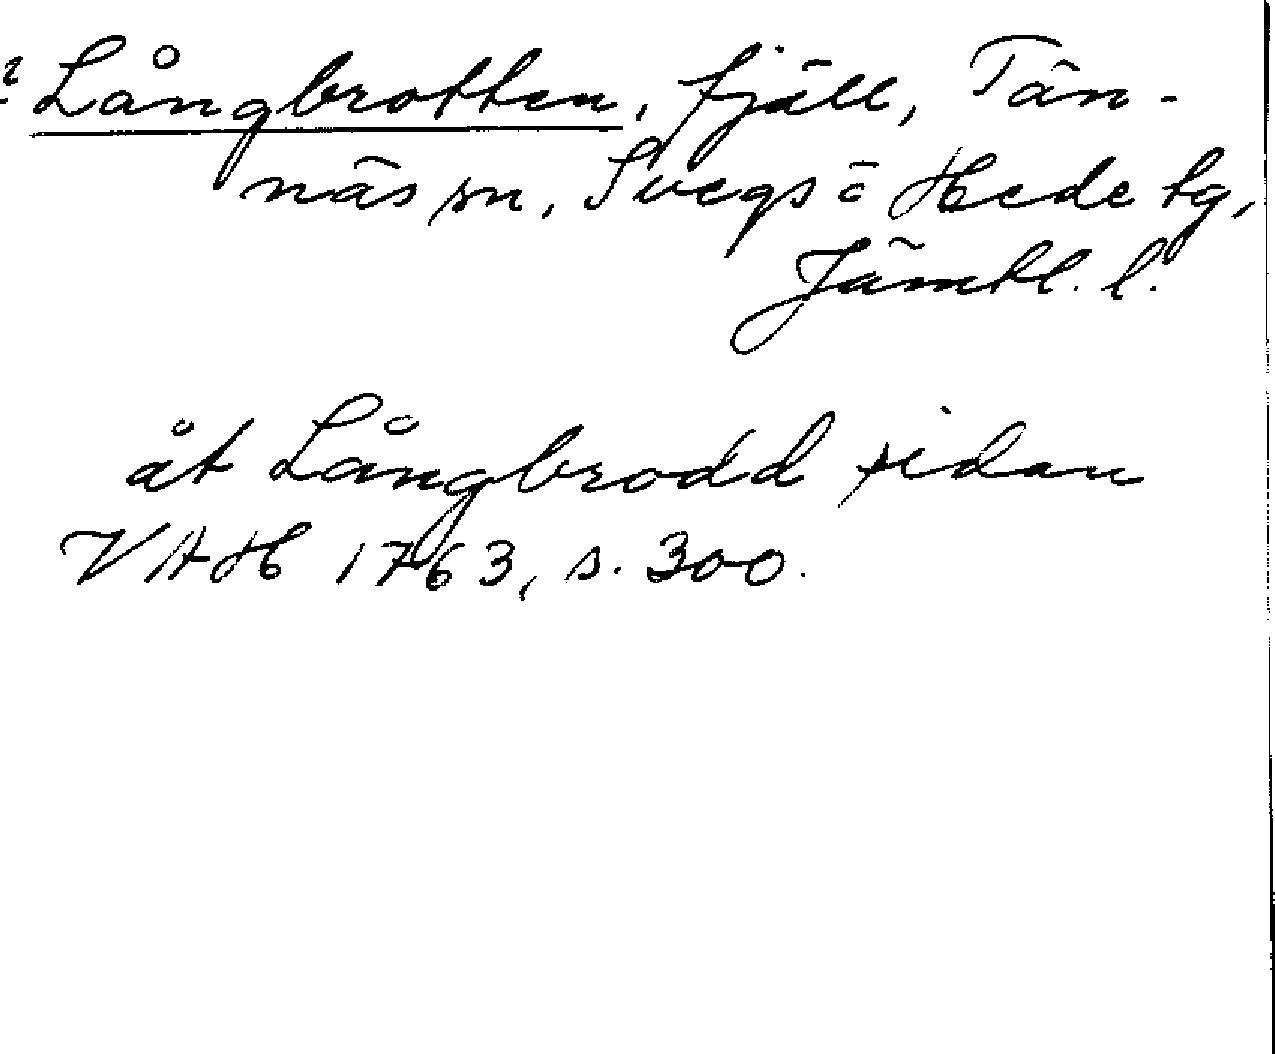 ? Långbrotten, fjäll, Tän-
näs sn, Svegs o Hede tg,
Jämtl. l.
åt Långbrodd sidan
VAH 1763, s. 300.